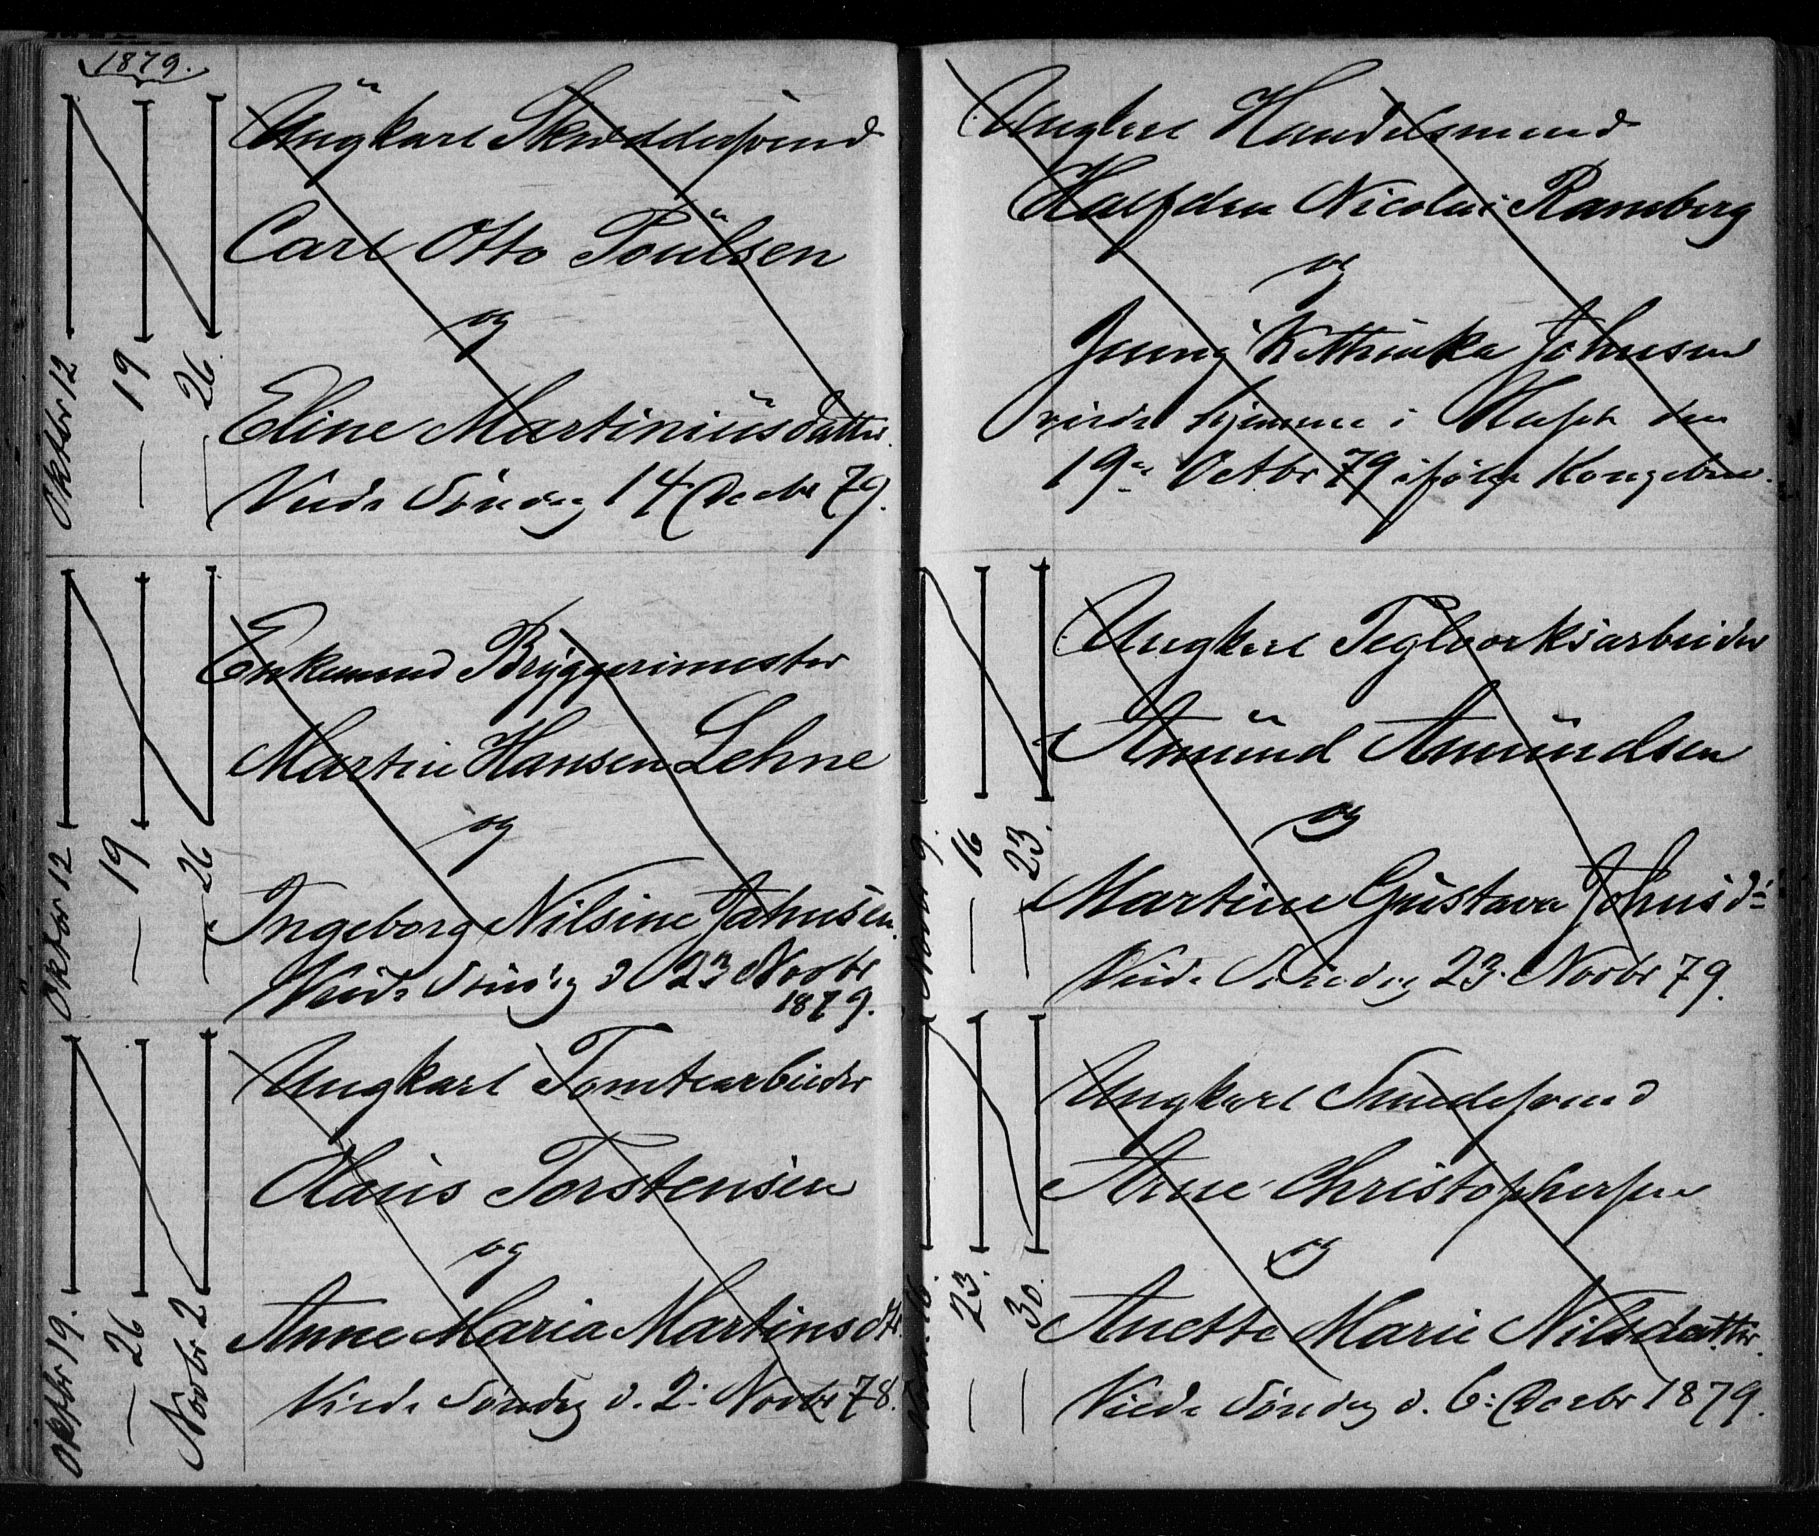 1879.
Oktbr 12
— 19
— 26.
Üngkarl Skræddersvend
Carl Otto Poülsen
og
Eline Martiniüsdatter.
Viede Söndag 14 Decbr 79.
Oktbr 12
— 19
— 26
Enkemand Bryggerimester
Martin Hansen Lehne
og
Ingeborg Nilsine Jahnsen.
Viede Söndag d. 23 Novbr
1879.
Oktbr 19.
— 26
Novbr 2
Ungkarl Tomtearbeider
Olaus Torstensen
og
Anne Maria Martinsdtr.
Viede Söndag d. 2: Novbr 78.
Ungkarl Handelsmand
Halfdan Nicolai Ramberg
og
Jenny Kathinka Johnsen
viede hjemme i den
19de Octbr 79 ifølge Kongebrev.
Novbr 9.
— 16
— 23.
Ungkarl Teglværksarbeider
Amünd Amündsen
og
Martine Gustava Johnsd:
Viede Söndag 23. Novbr 79.
16.
— 23.
— 30.
Ungkarl Smedesvend
Arne Christophersen
og
Anette Marie Nilsdatter.
Viede Söndag d. 6: Decbr 1879.